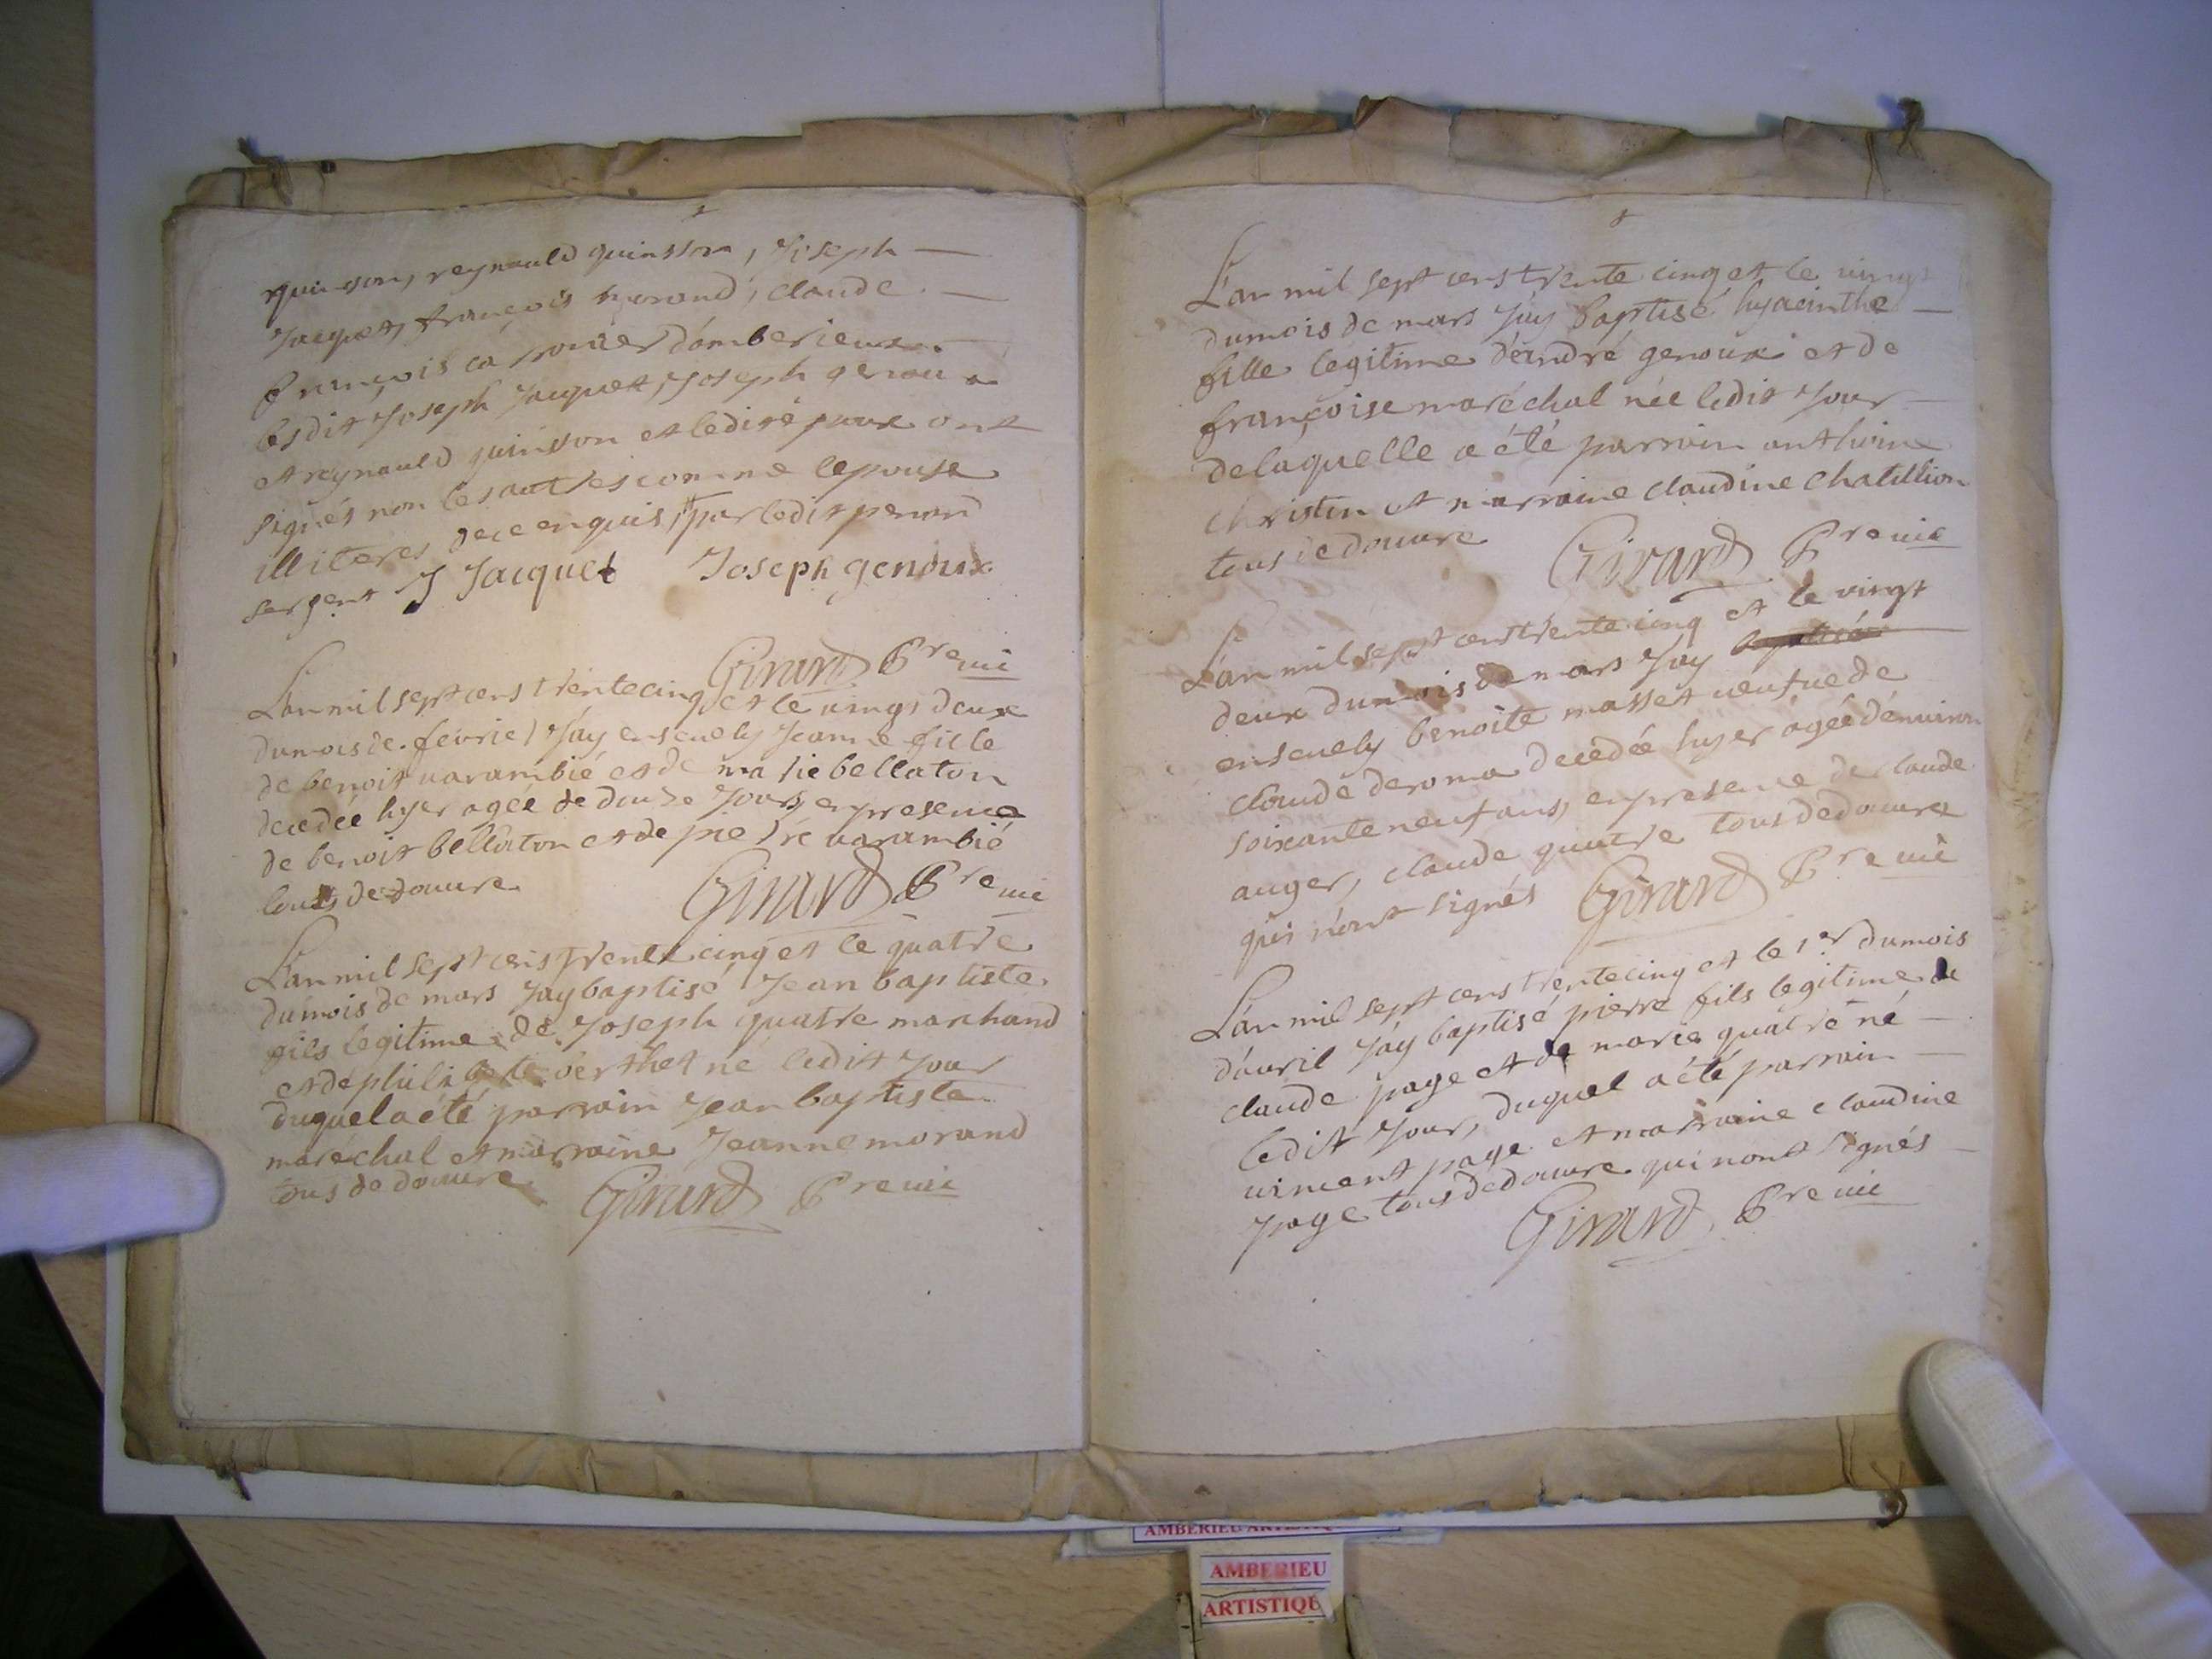 quinson, reynauld quinsson, Joseph —
Jacquet, françois morand, claude —
françois ca sonier d'amberieux.
lesdit Joseph Jacquet, Joseph genoux
et reynauld quinsson et ledit époux ont
signés non les autres comme lepouse
illiteres de ce enquis, par ledit penon
sergent J Jacquet Joseph genoux
Girard P^re vic
L'an mil sept cens trente cinq et le vingt deux
du mois de fevrier J'ay ensevely Jeanne fille
de benoit varambié et de marie bellaton
decedée hyer agée de douze Jours, en presence
de benoit bellaton et de pierre varambié
tous de douvre
Girard P^re vic
L'an mil sept cens trente cinq et le quatre
du mois de mars J'ay baptisé Jean baptiste
fils legitime de Joseph quatre marchand
et de philiberte berthet né ledit Jour
duquel a été parrain Jean baptiste
maréchal et marraine Jeanne morand
tous de douvre Girard P^re vic
L'an mil sept cens trente cinq et le vingt
du mois de mars J'ay baptisé hyacinthe —
fille legitime d'andré genoux et de
françoise maréchal née ledit Jour —
de laquelle a été parrain anthoine
christin et marraine claudine chatillion
tous de douvre Girard P^re vic
L'an mil sept cens trente cinq et le vingt
deux du mois de mars J'ay baptisé
ensevely benoite masset veufve de
claude deroma decedée hyer agée d'environ
soixante neuf ans, en presence de claude
auger, claude quatre tous de douvre
qui n'ont signés Girard P^re vic
L'an mil sept cens trente cinq et le 1^er du mois
d'avril J'ay baptisé pierre fils legitime de
claude page et de marie quatre né —
ledit Jour, duquel a été parrain —
vincent page et marraine claudine
page tous de douvre qui n'ont signés —
Girard P^re vic
AMBERIEU ARTISTIQUE
AMBERIEU
ARTISTIQUE